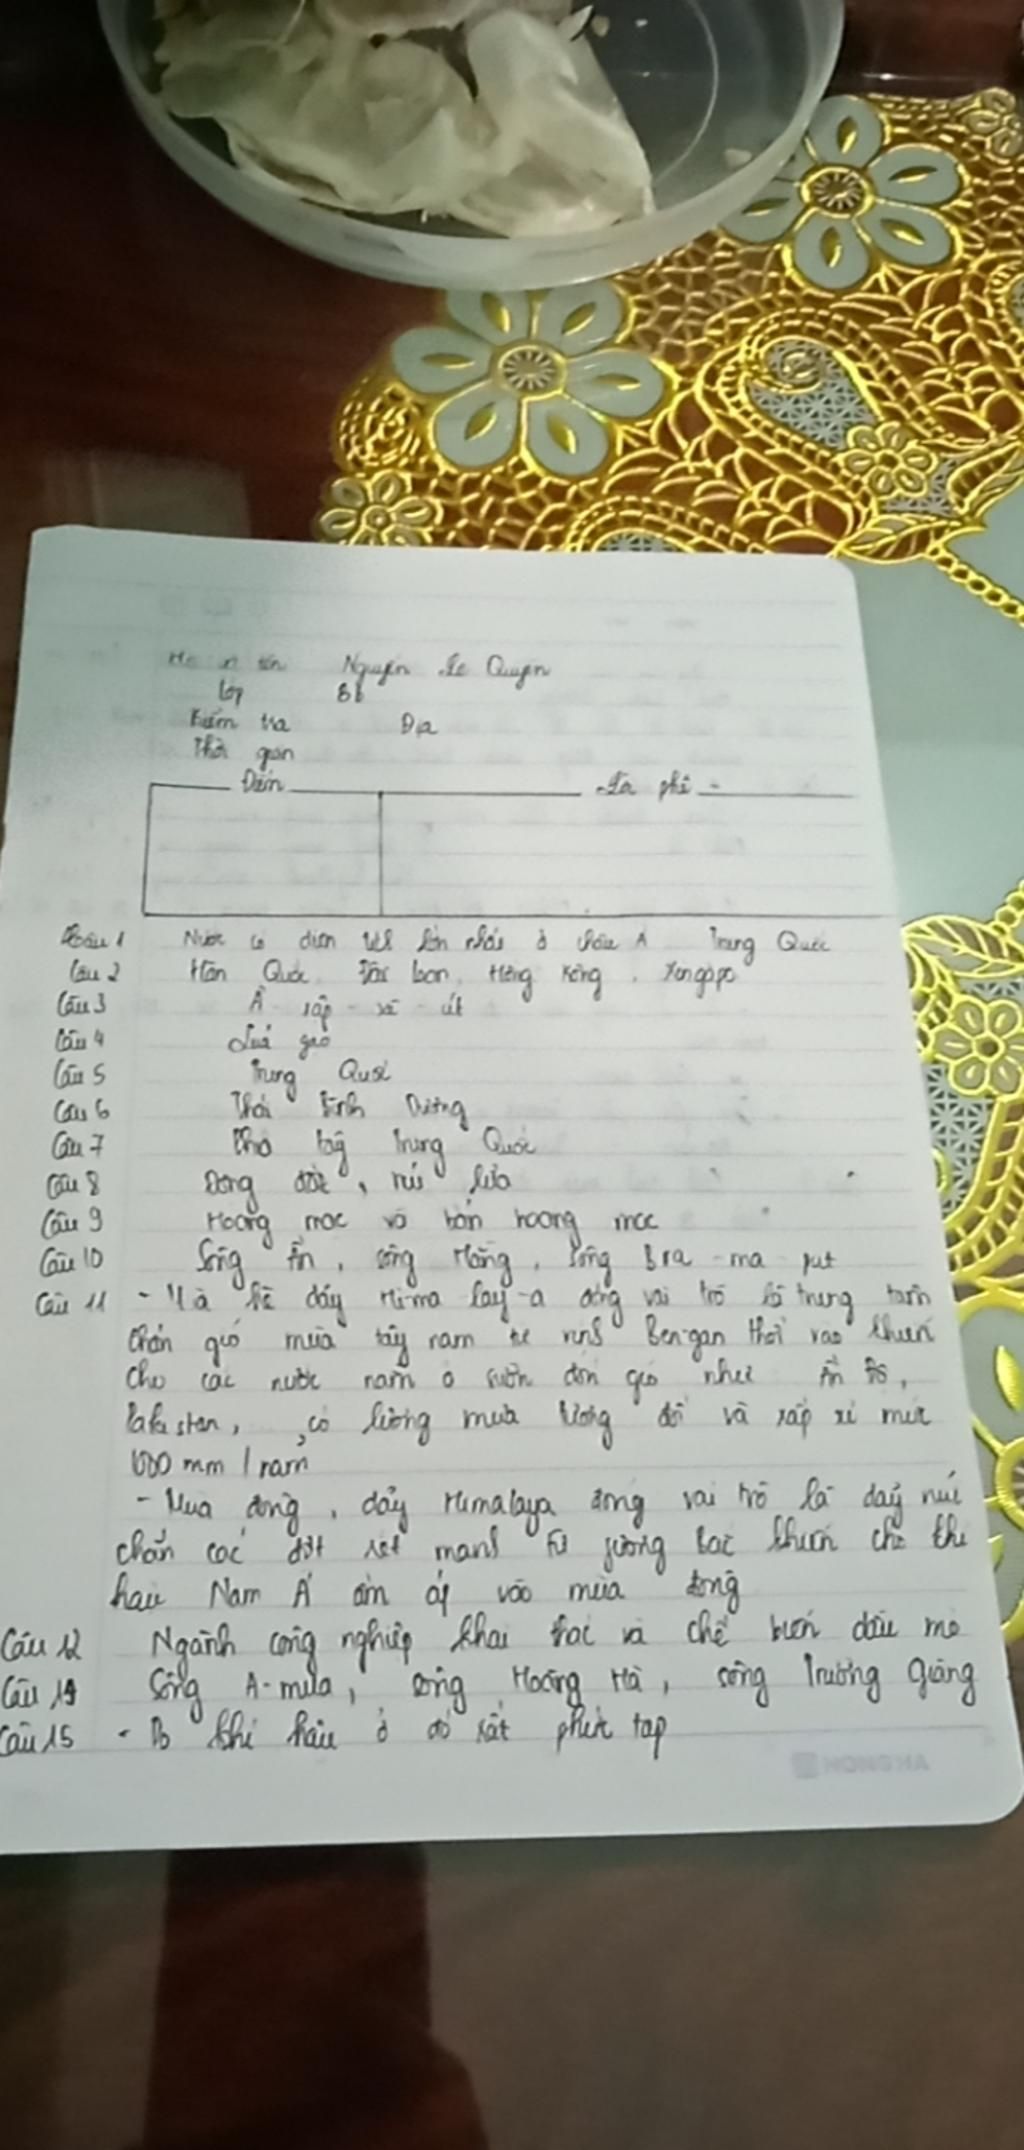 Họ và tên Nguyễn Lê Quyên
Lớp 8b
Kiểm tra Địa
Thời gian
Điểm Lời phê
Câu 1 Nước có diện tích lớn nhất ở châu Á Trung Quốc
Câu 2 Hàn Quốc, Đài Loan, Hồng Kông, Xingapo
Câu 3 Ả - rập - xê - út
Câu 4 Lúa gạo
Câu 5 Trung Quốc
Câu 6 Thái Bình Dương
Câu 7 Phía tây Trung Quốc
Câu 8 Động đất, núi lửa
Câu 9 Hoang mạc và bán hoang mạc
Câu 10 Sông Ấn, sông Hằng, sông Bra - ma - put
Câu 11 - Mùa hè dãy Hi-ma-lay-a đóng vai trò là trung tâm
chắn gió mùa tây nam từ vịnh Ben-gan thổi vào khiến
cho các nước nằm ở sườn đón gió như Ấn Độ,
Pakistan, có lượng mưa tương đối và xấp xỉ mức
1000 mm / năm
- Mùa đông, dãy Himalaya đóng vai trò là dãy núi
chắn các đợt rét mạnh từ phương Bắc khiến cho khí
hậu Nam Á ấm áp vào mùa đông
Câu 12 Ngành công nghiệp khai thác và chế biến dầu mỏ
Câu 14 Sông A-mua, sông Hoàng Hà, sông Trường Giang
Câu 15 - Do khí hậu ở đó rất phức tạp
HONG HA